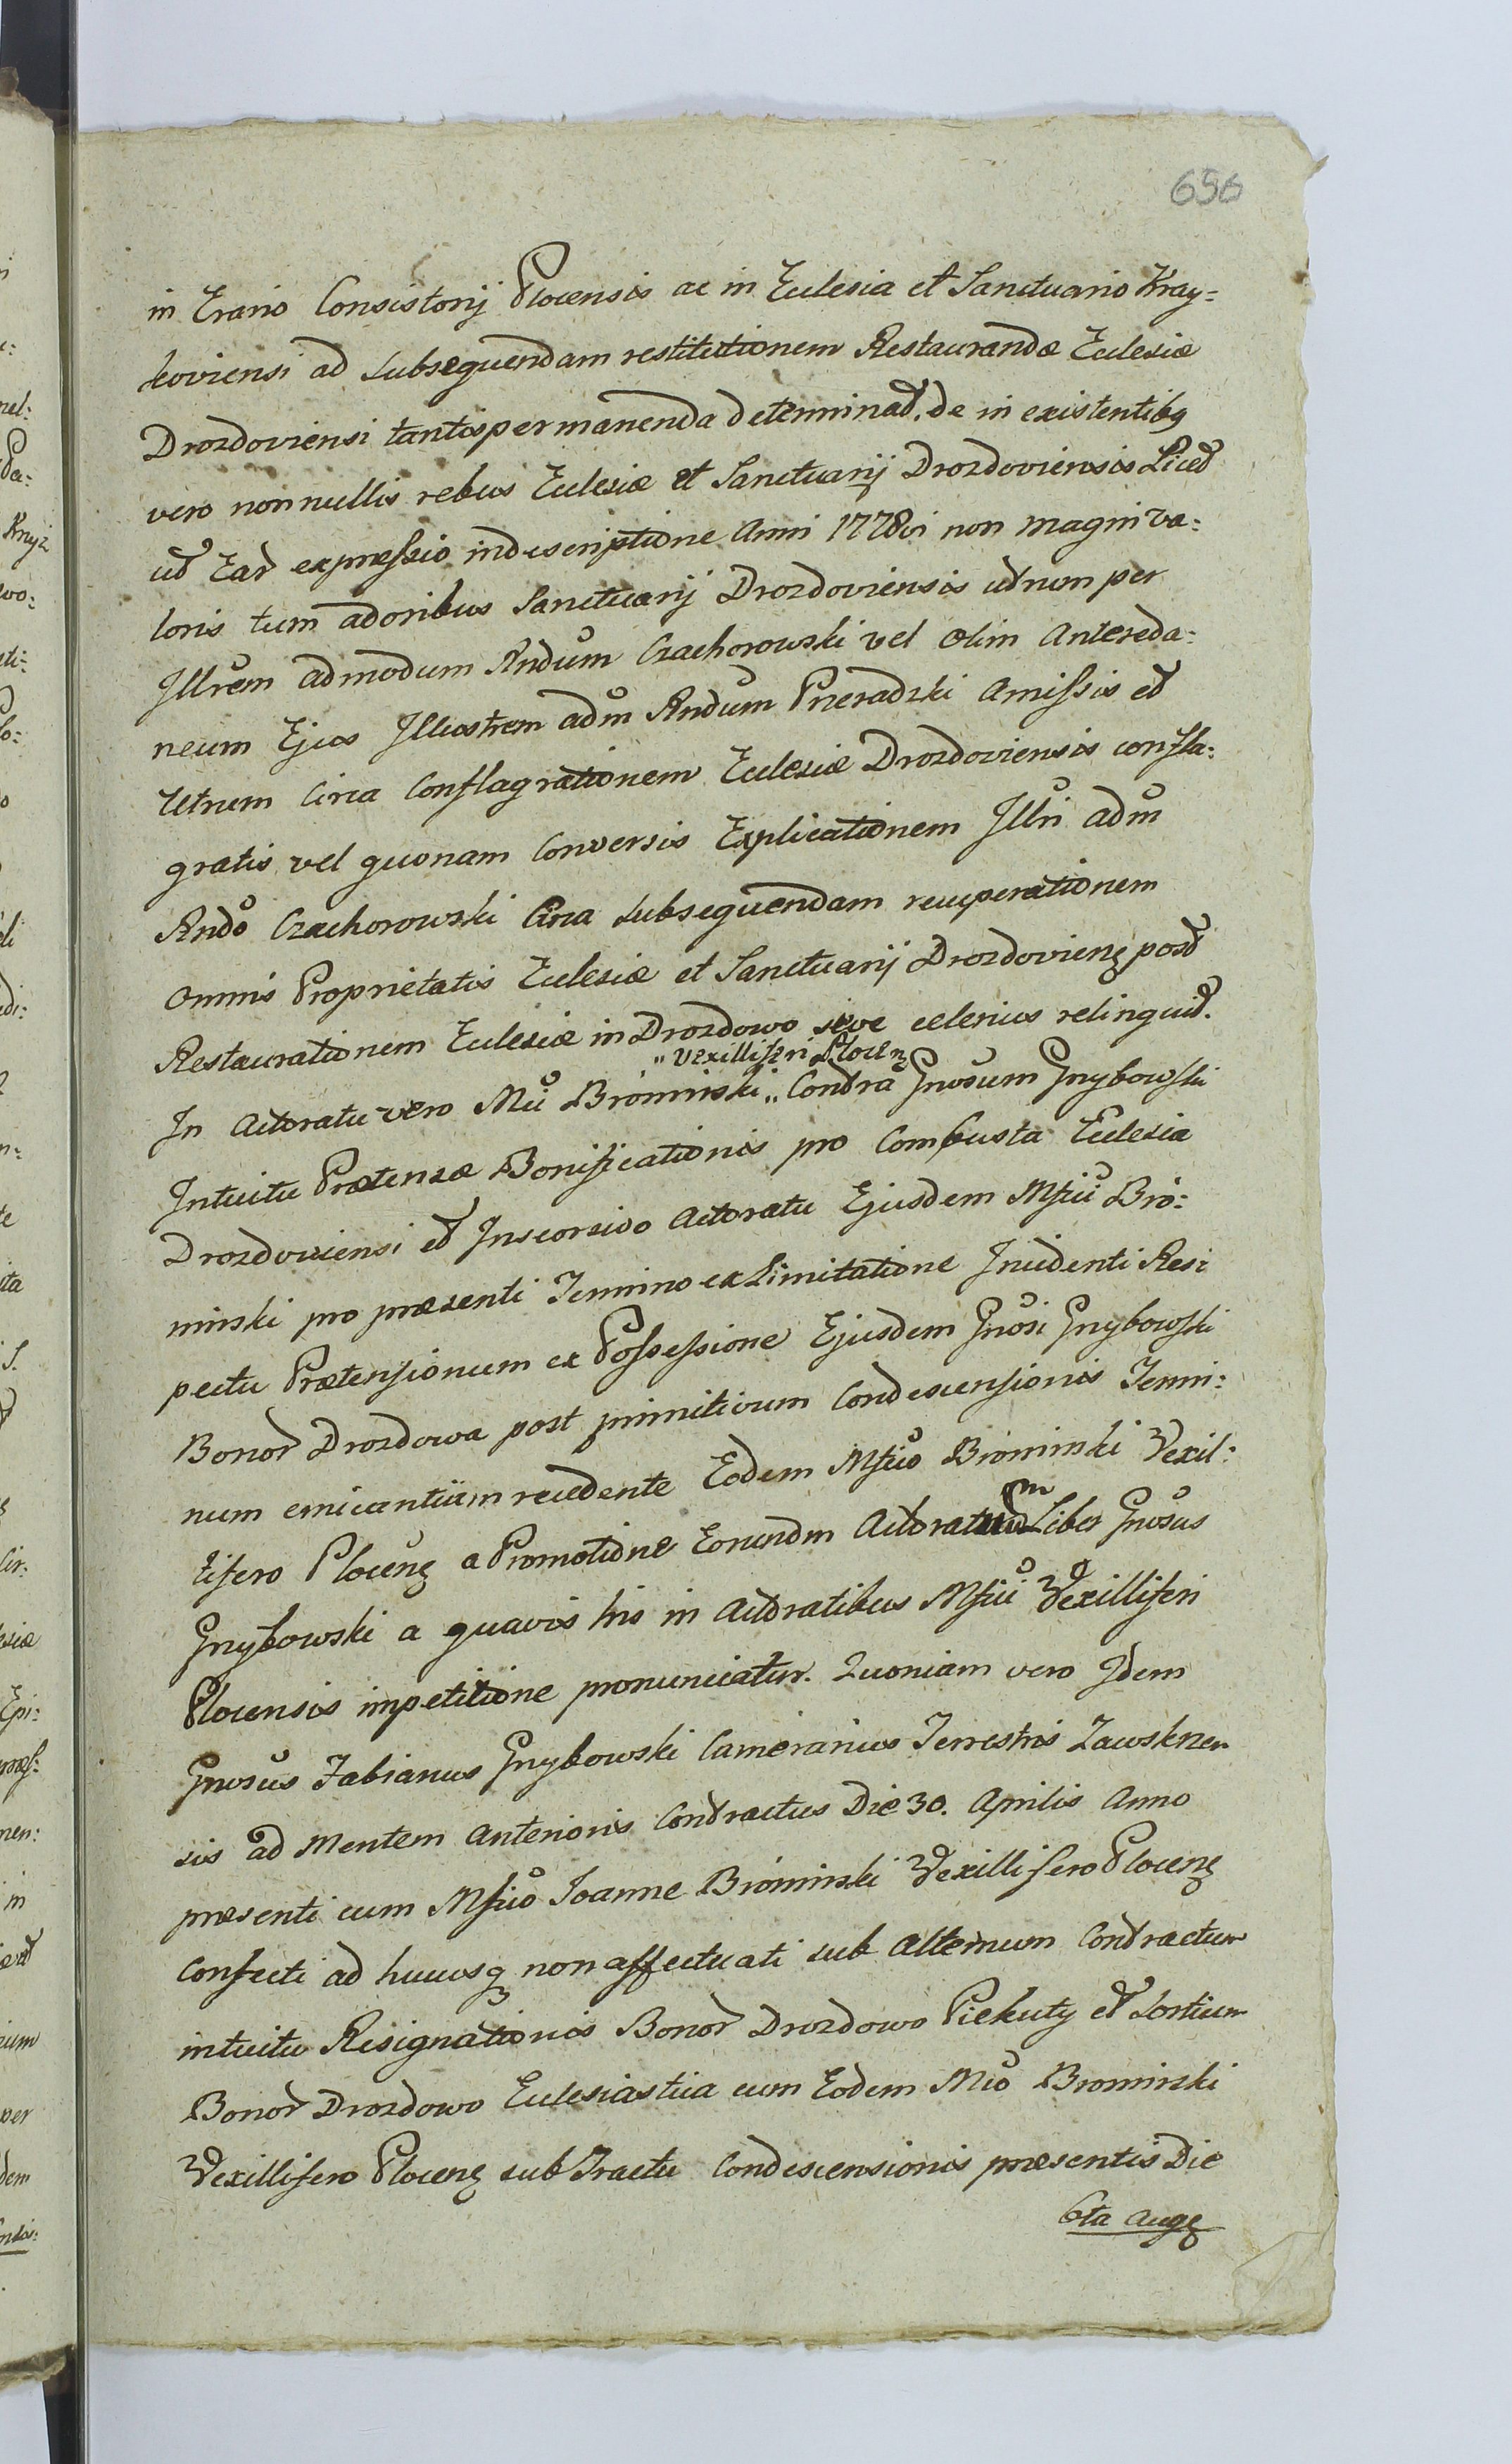 656
in Erario Consistorij Plocensis ac in Eclesia et Sanctuario Kray=
koviensi ad subsequendam restitutionem Restaurandæ Eclesiæ
Drozdoviensi tantisper manenda determinat. de in existentibq
vero nonnullis rebus Eclesiæ et Sanctuarij Drozdoviensis Licet
ut Ear expressio indescriptione Anni 1778vi non magni va=
loris tum adoribus Sanctuarij Drozdoviensis utrum per
Illrem admodum Rndum Czachorowski vel olim Anteceda=
neum Ejus Illustrem adm Rndum Pneradzki Amissis et
Utrum Circa Conflagrationem Eclesiæ Drozdoviensis confla=
gratis vel quonam Conversis Explicationem Illri adm
Rndo Czachorowski Circa subsequendam recuperationem
Omnis Proprietatis Eclesiæ et Sanctuarij Drozdovienẜ post
Restaurationem Eclesiæ in Drozdowo sive celerius relinquit.
"Vexilliferi Plocenẜ
In Actoratu vero Mci Brominski „ Contra Gnosum Grzybowski
Intuitu Prætensæ Bonificationis pro Combusta Eclesia
Drozdoviensi et Inscorsivo Actoratu Ejusdem Mfici Bro=
minski pro præsenti Termino ex Limitatione Incidenti Resi
pectu Prætensionum ex Possessione Ejusdem Gnosi Grzybowski
Bonor Drozdowa post primitivum Condescensionis Termi=
num emicantium recedente Eodem Mfico Brominski Vexil=
lifero Plocenẜ a Promotione Eorundm Actoratum Liber Gnosus
Grzybowski a quavis his in Actoratibus Mfici Vexilliferi
Plocensis impetitione pronunciatur. Quoniam vero Idem
Gnosus Fabianus Grzybowski Camerarius Terrestris Zawskrzen
sis ad Mentem Anterioris Contractus Die 30. Aprilis Anno
præsenti cum Mfico Joanne Brominski Vexillifero Plocenẜ
Confecti ad hucusq non affectuati sub Alternum Contractum
intuitu Resignationis Bonor Drozdowo Piekuty et Sortium
Bonor Drozdowo Eclesiastica cum Eodem Mco Brominski
Vexillifero Plocenẜ sub Tractu Condescensionis præsentis Die
6ta Augẜ